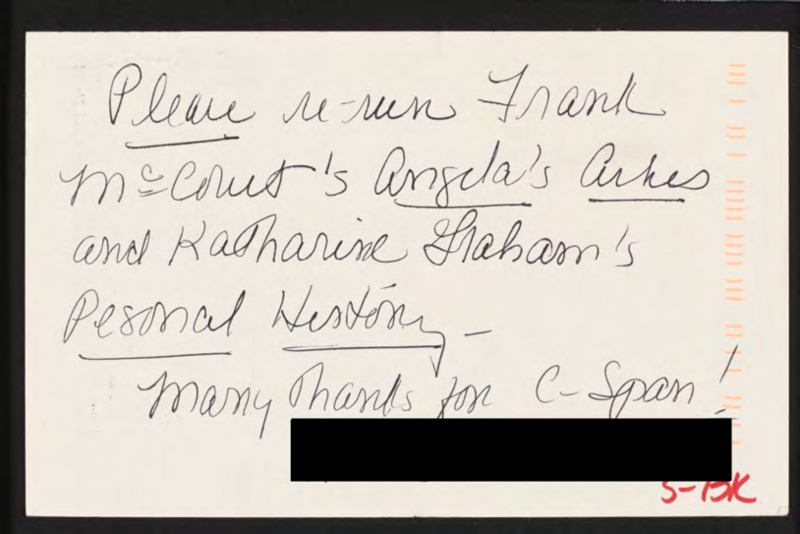 Please re-run Frank
McCourt's Angela's Ashes
and Katharine Graham's
Pesonal History –
Many thanks for C-Span!
S-BK